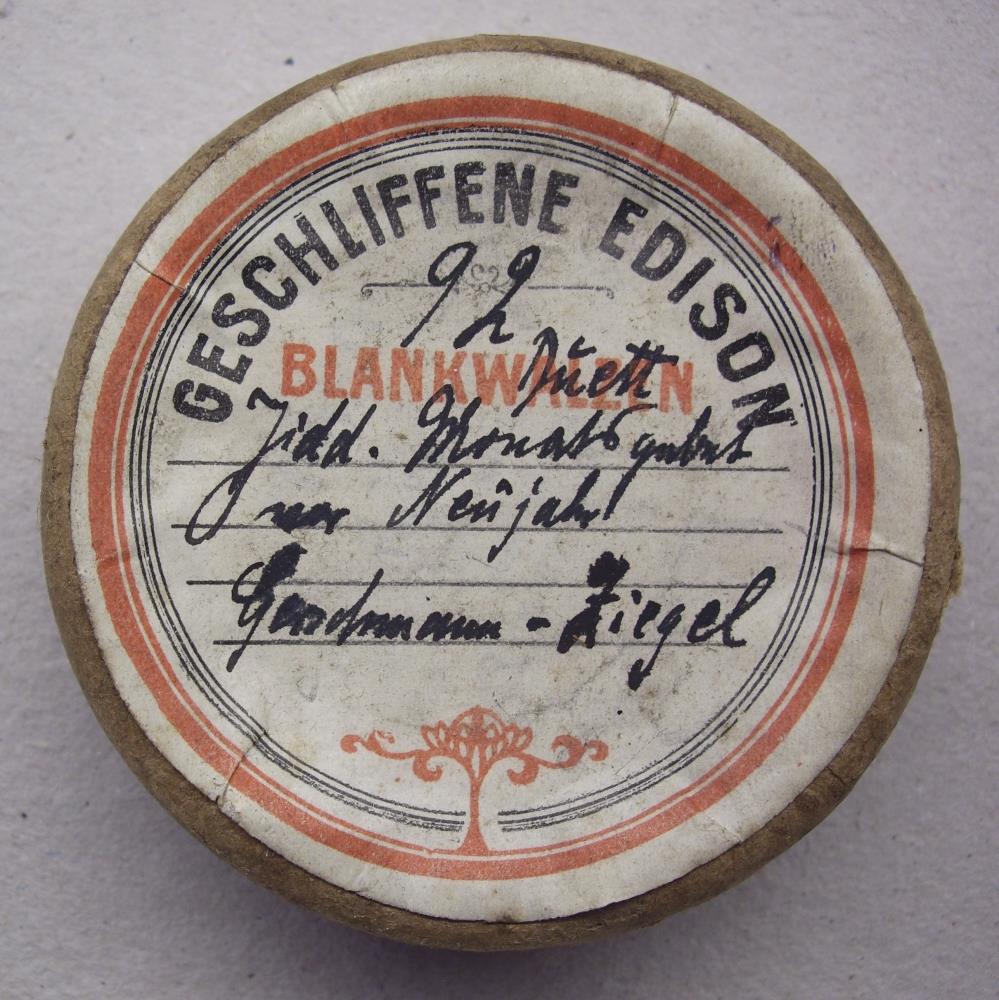 GESCHLIFFENE EDISON
92
BLANKWALZEN
Duett
Jidd. Monatsgebet
vor Neujahr
- Ziegel